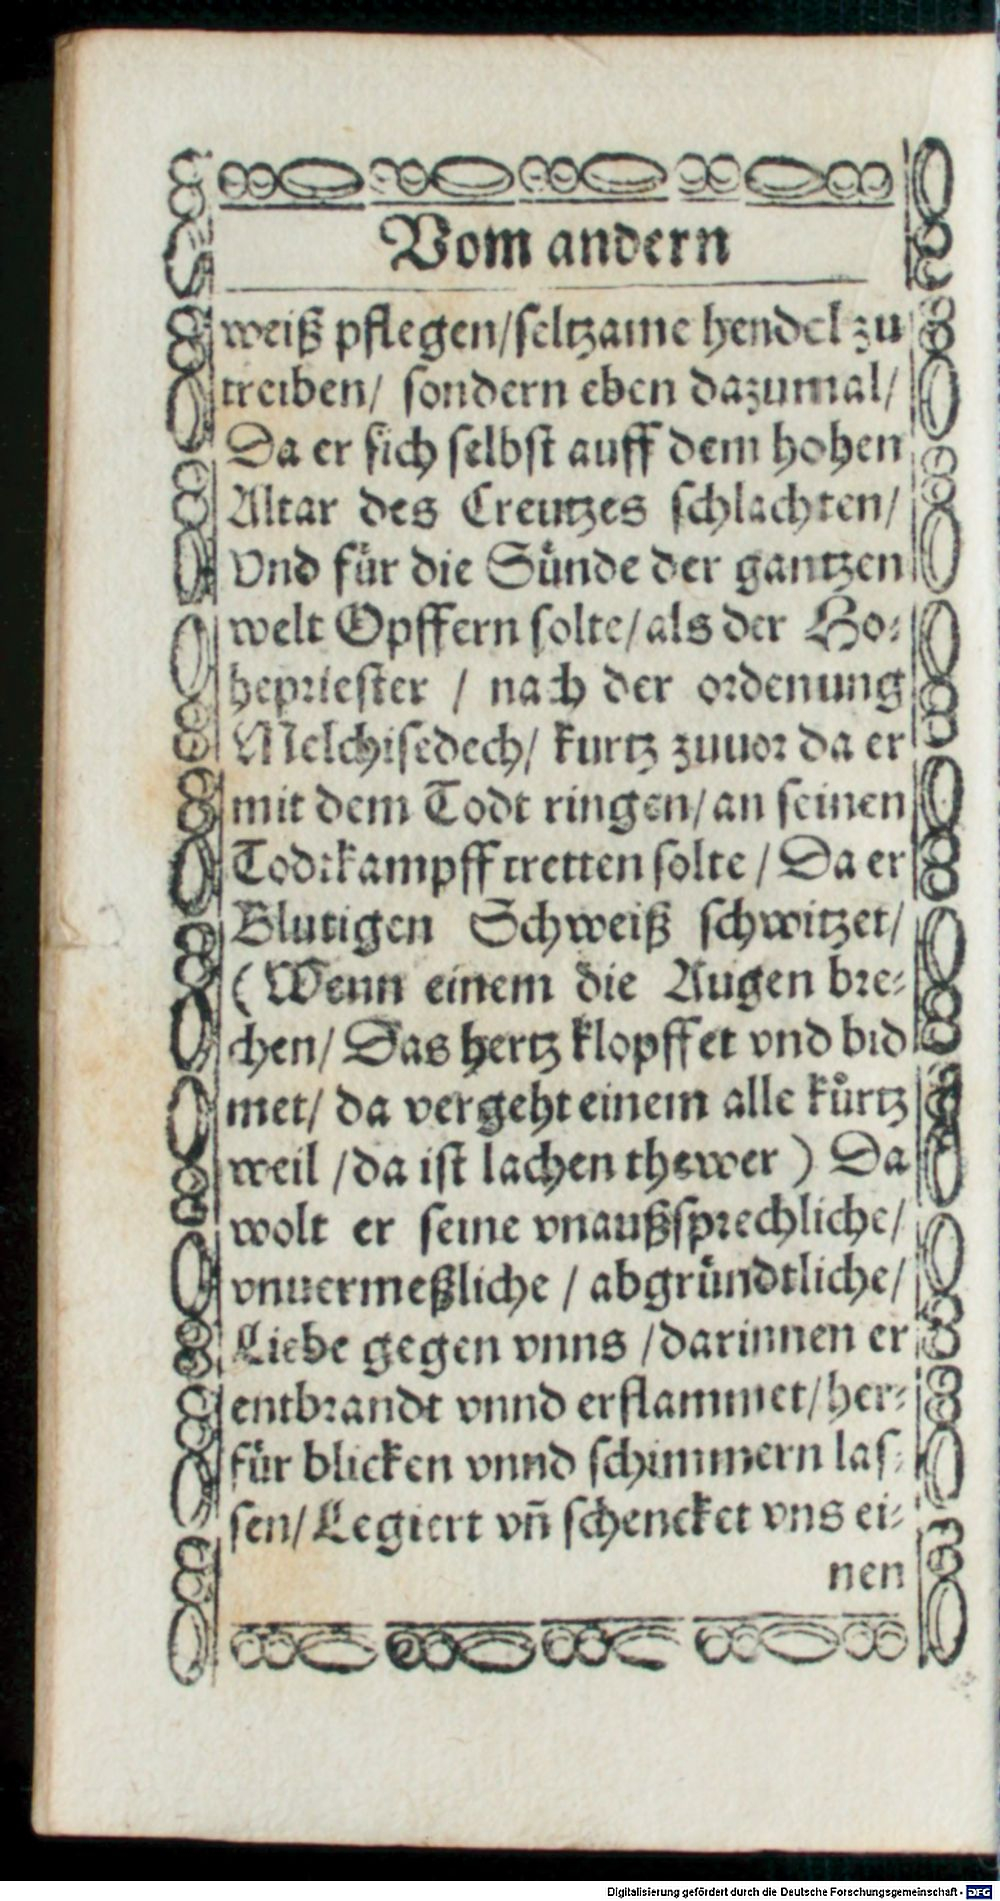 Vom andern
weiß pflegen/seltzame hendel zu
treiben/ sondern eben dazumal/
Da er sich selbst auff dem hohen
Altar des Creutzes schlachten/
Vnd fuͤr die Suͤnde der gantzen
welt Opffern solte/als der Ho⸗
hepriester / nach der ordenung
Melchisedech/ kurtz zuuor da er
mit dem Todt ringen/an seinen
Todtkampff tretten solte / Da er
Blutigen Schweiß schwitzet/
(Wenn einem die Augen bre⸗
chen/ Das hertz klopffet vnd bid
met/ da vergeht einem alle kuͤrtz
weil /da ist lachen thewer ) Da
wolt er seine vnaußsprechliche/
vnuermeßliche / abgruͤndtliche/
Liebe gegen vnns /darinnen er
entbrandt vnnd erflammet/her⸗
fuͤr blicken vnnd schimmern las⸗
sen/Legiert vñ schencket vns ei⸗
nen
Digitalisierung gefördert durch die Deutsche Forschungsgemeinschaft - DFG